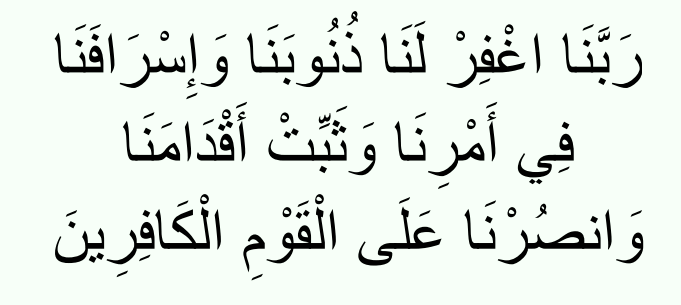 رَبَّنَا اغْفِرْ لَنَا ذُنُوبَنَا وَإِسْرَافَنَا
فِي أَمْرِنَا وَثَبِّتْ أَقْدَامَنَا
وَانصُرْنَا عَلَى الْقَوْمِ الْكَافِرِينَ